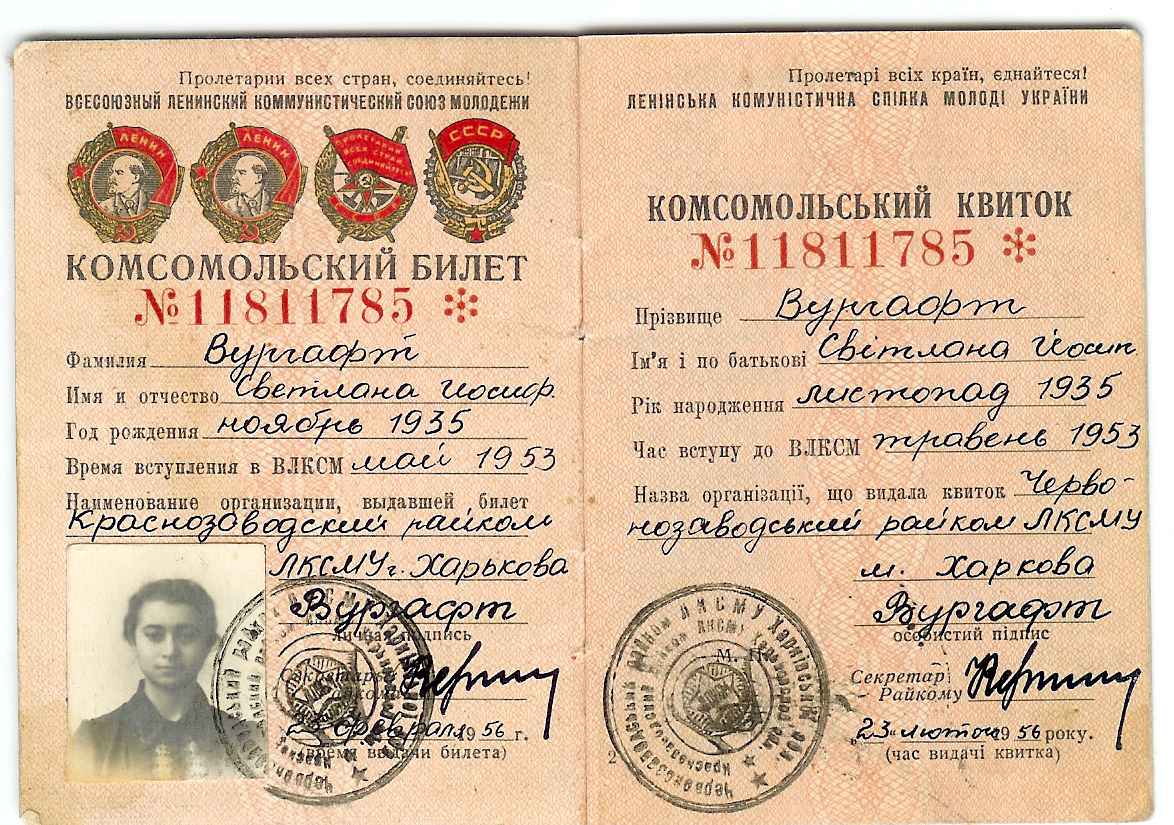 Пролетарии всех стран, соединяйтесь!
ВСЕСОЮЗНЫЙ ЛЕНИНСКИЙ КОММУНИСТИЧЕСКИЙ СОЮЗ МОЛОДЕЖИ
ЛЕНИН
ЛЕНИН
ПРОЛЕТАРИИ ВСЕХ СТРАН СОЕДИНЯЙТЕСЬ
СССР
КОМСОМОЛЬСКИЙ БИЛЕТ
№11811785
Фамилия Вургафт
Имя и отчество Светлана Иосиф.
Год рождения ноябрь 1935
Время вступления в ВЛКСМ май 1953
Наименование организации, выдавшей билет
Краснозаводский райком
ЛКСМУ г. Харькова
Вургафт
личная подпись
Секретарь
Райкома
февраля 1956 г.
(время выдачи билета)
Пролетарі всіх країн, єднайтеся!
ЛЕНІНСЬКА КОМУНІСТИЧНА СПІЛКА МОЛОДІ УКРАЇНИ
КОМСОМОЛЬСЬКИЙ КВИТОК
№11811785
Прізвище Вургафт
Ім'я і по батькові Світлана Йосип.
Рік народження листопад 1935
Час вступу до ВЛКСМ травень 1953
Назва організації, що видала квиток Черво-
нозаводський райком ЛКСМУ
м. Харкова
Вургафт
особистий підпис
М.
Секретар
Райкому
„23" лютого 1956 року.
(час видачі квитка)
2